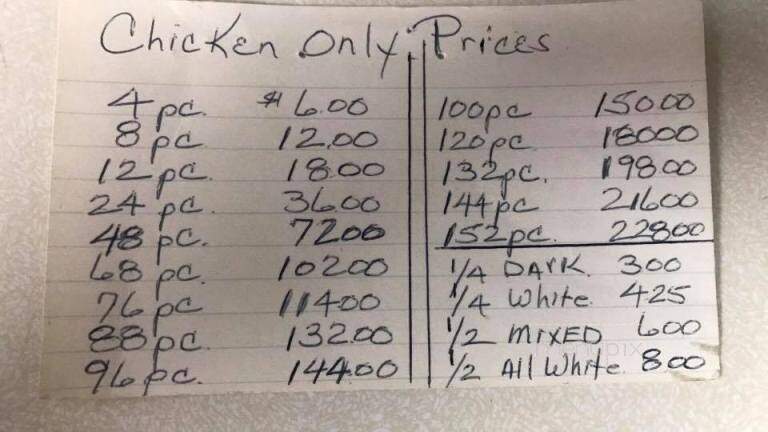 Chicken Only Prices
4 pc. $6.00
8 pc 12.00
12 pc. 18.00
24 pc. 36.00
48 pc. 72.00
68 pc. 102.00
76 pc 114.00
88 pc. 132.00
96 pc. 144.00
100 pc 150.00
120 pc. 180.00
132 pc. 198.00
144 pc 216.00
152 pc. 228.00
1/4 DARK. 300
1/4 White. 425
1/2 MIXED 600
1/2 All White. 800